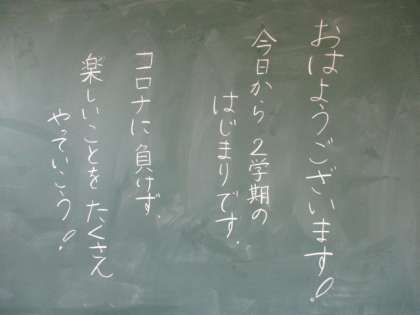 おはようございます!
今日から 2学期の
はじまりです.
コロナに 負けず.
楽しいことを たくさん
やっていこう!